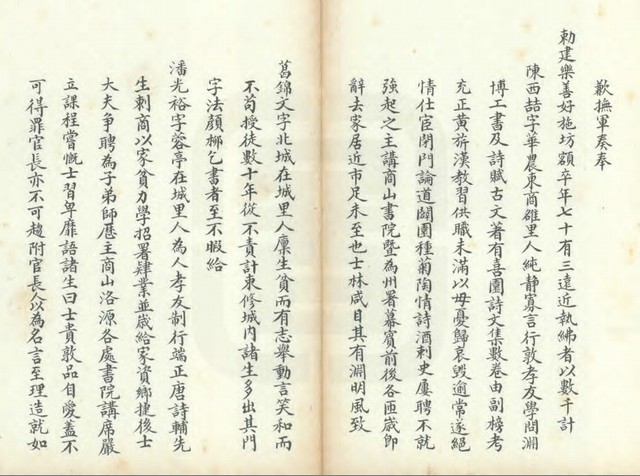 歉撫軍奏奉
勅建樂善好施坊額卒年七十有三遠近執紼者以數千計
陳西喆字華農東商雒里人純靜寡言行敦孝友學問淵
博工書及詩賦古文著有喜園詩文集數卷由副榜考
充正黃旂漢教習供職未滿以母憂歸哀毀逾常遂絕
情仕宦閉門論道闢園種菊陶情詩酒刺史屢聘不就
強起之主講商山書院暨為州署幕賓前後各匝歲即
辭去家居近市足未至也士林咸目其有淵明風致
葛錦文字北城在城里人廩生貧而有志舉動言笑和而
不苟授徒數十年從不責計束修城內諸生多出其門
字法顏柳乞書者至不暇給
潘光裕字蓉亭在城里人為人孝友制行端正唐詩輔先
生刺商以家貧力學招署肄業並歲給家資鄉捷後士
大夫爭聘為子弟師歷主商山洛源各處書院講席嚴
立課程嘗慨士習卑靡語諸生曰士貴敦品自愛蓋不
可得罪官長亦不可趨附官長人以為名言至理造就如